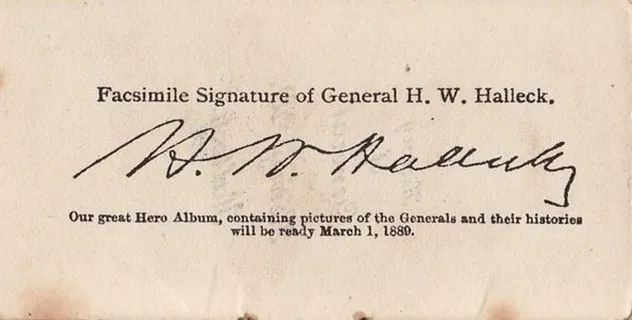 Facsimile Signature of General H. W. Halleck.
H. W. Halleck
Our great Hero Album, containing pictures of the Generals and their histories
will be ready March 1, 1889.